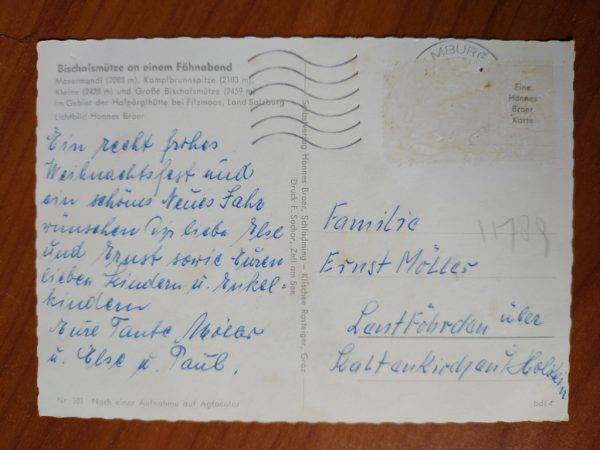 Bischofsmütze an einem Föhnabend
Mosermandl (2088 m), Kampfbrunnspitze (2183 m)
Kleine (2428 m) und Große Bischofsmütze (2459 m)
im Gebiet der Hofpürglhütte bei Filzmoos, Land Salzburg
Lichtbild Hannes Broer
Ein recht frohes
Weihnachtsfest und
ein schönes Neues Jahr
wünschen Dir liebe Else
und Ernst sowie Euren
lieben Kindern u. Enkel-
kindern
Eure Tante
u. Else u. Paul.
Nr. 101 Nach einer Aufnahme auf Agfacolor
Schlagverlag Hannes Broer, Schladming – Klischee Rosteiger, Graz
Druck F. Sochor, Zell am See
MBURG
Eine
Hannes
Broer
Karte
11789
Familie
Ernst Möller
Lentföhrden über
Kaltenkirchen / Holstein
bdf 4